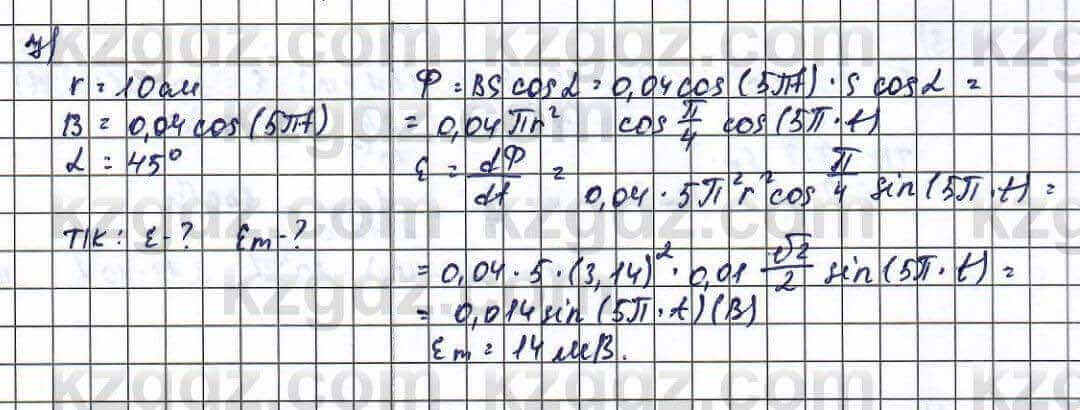 7)
r = 10 см
B = 0,04 cos (5πt)
α = 45°
T/K: ε-? εm-?
Φ = BS cos α = 0,04 cos (5πt) · S cos α =
= 0,04 πr² cos π/4 cos (5π·t)
ε = dΦ/dt = 0,04 · 5π²r² cos π/4 sin (5π·t) =
= 0,04 · 5 · (3,14)² · 0,01 √2/2 sin (5π·t) =
= 0,014 sin (5π·t) (В)
εm = 14 мВ.
kzgdz.com